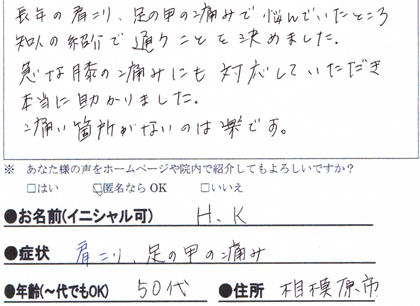 長年の肩こり、足の甲の痛みで悩んでいたところ
知人の紹介で通うことを決めました。
急な膝の痛みにも対応していただき
本当に助かりました。
痛い箇所がないのは楽です。
※ あなた様の声をホームページや院内で紹介してもよろしいですか？
□はい ☑匿名なら OK □いいえ
●お名前(イニシャル可) H.K
●症状 肩こり、足の甲の痛み
●年齢(～代でもOK) 50代 ●住所 相模原市